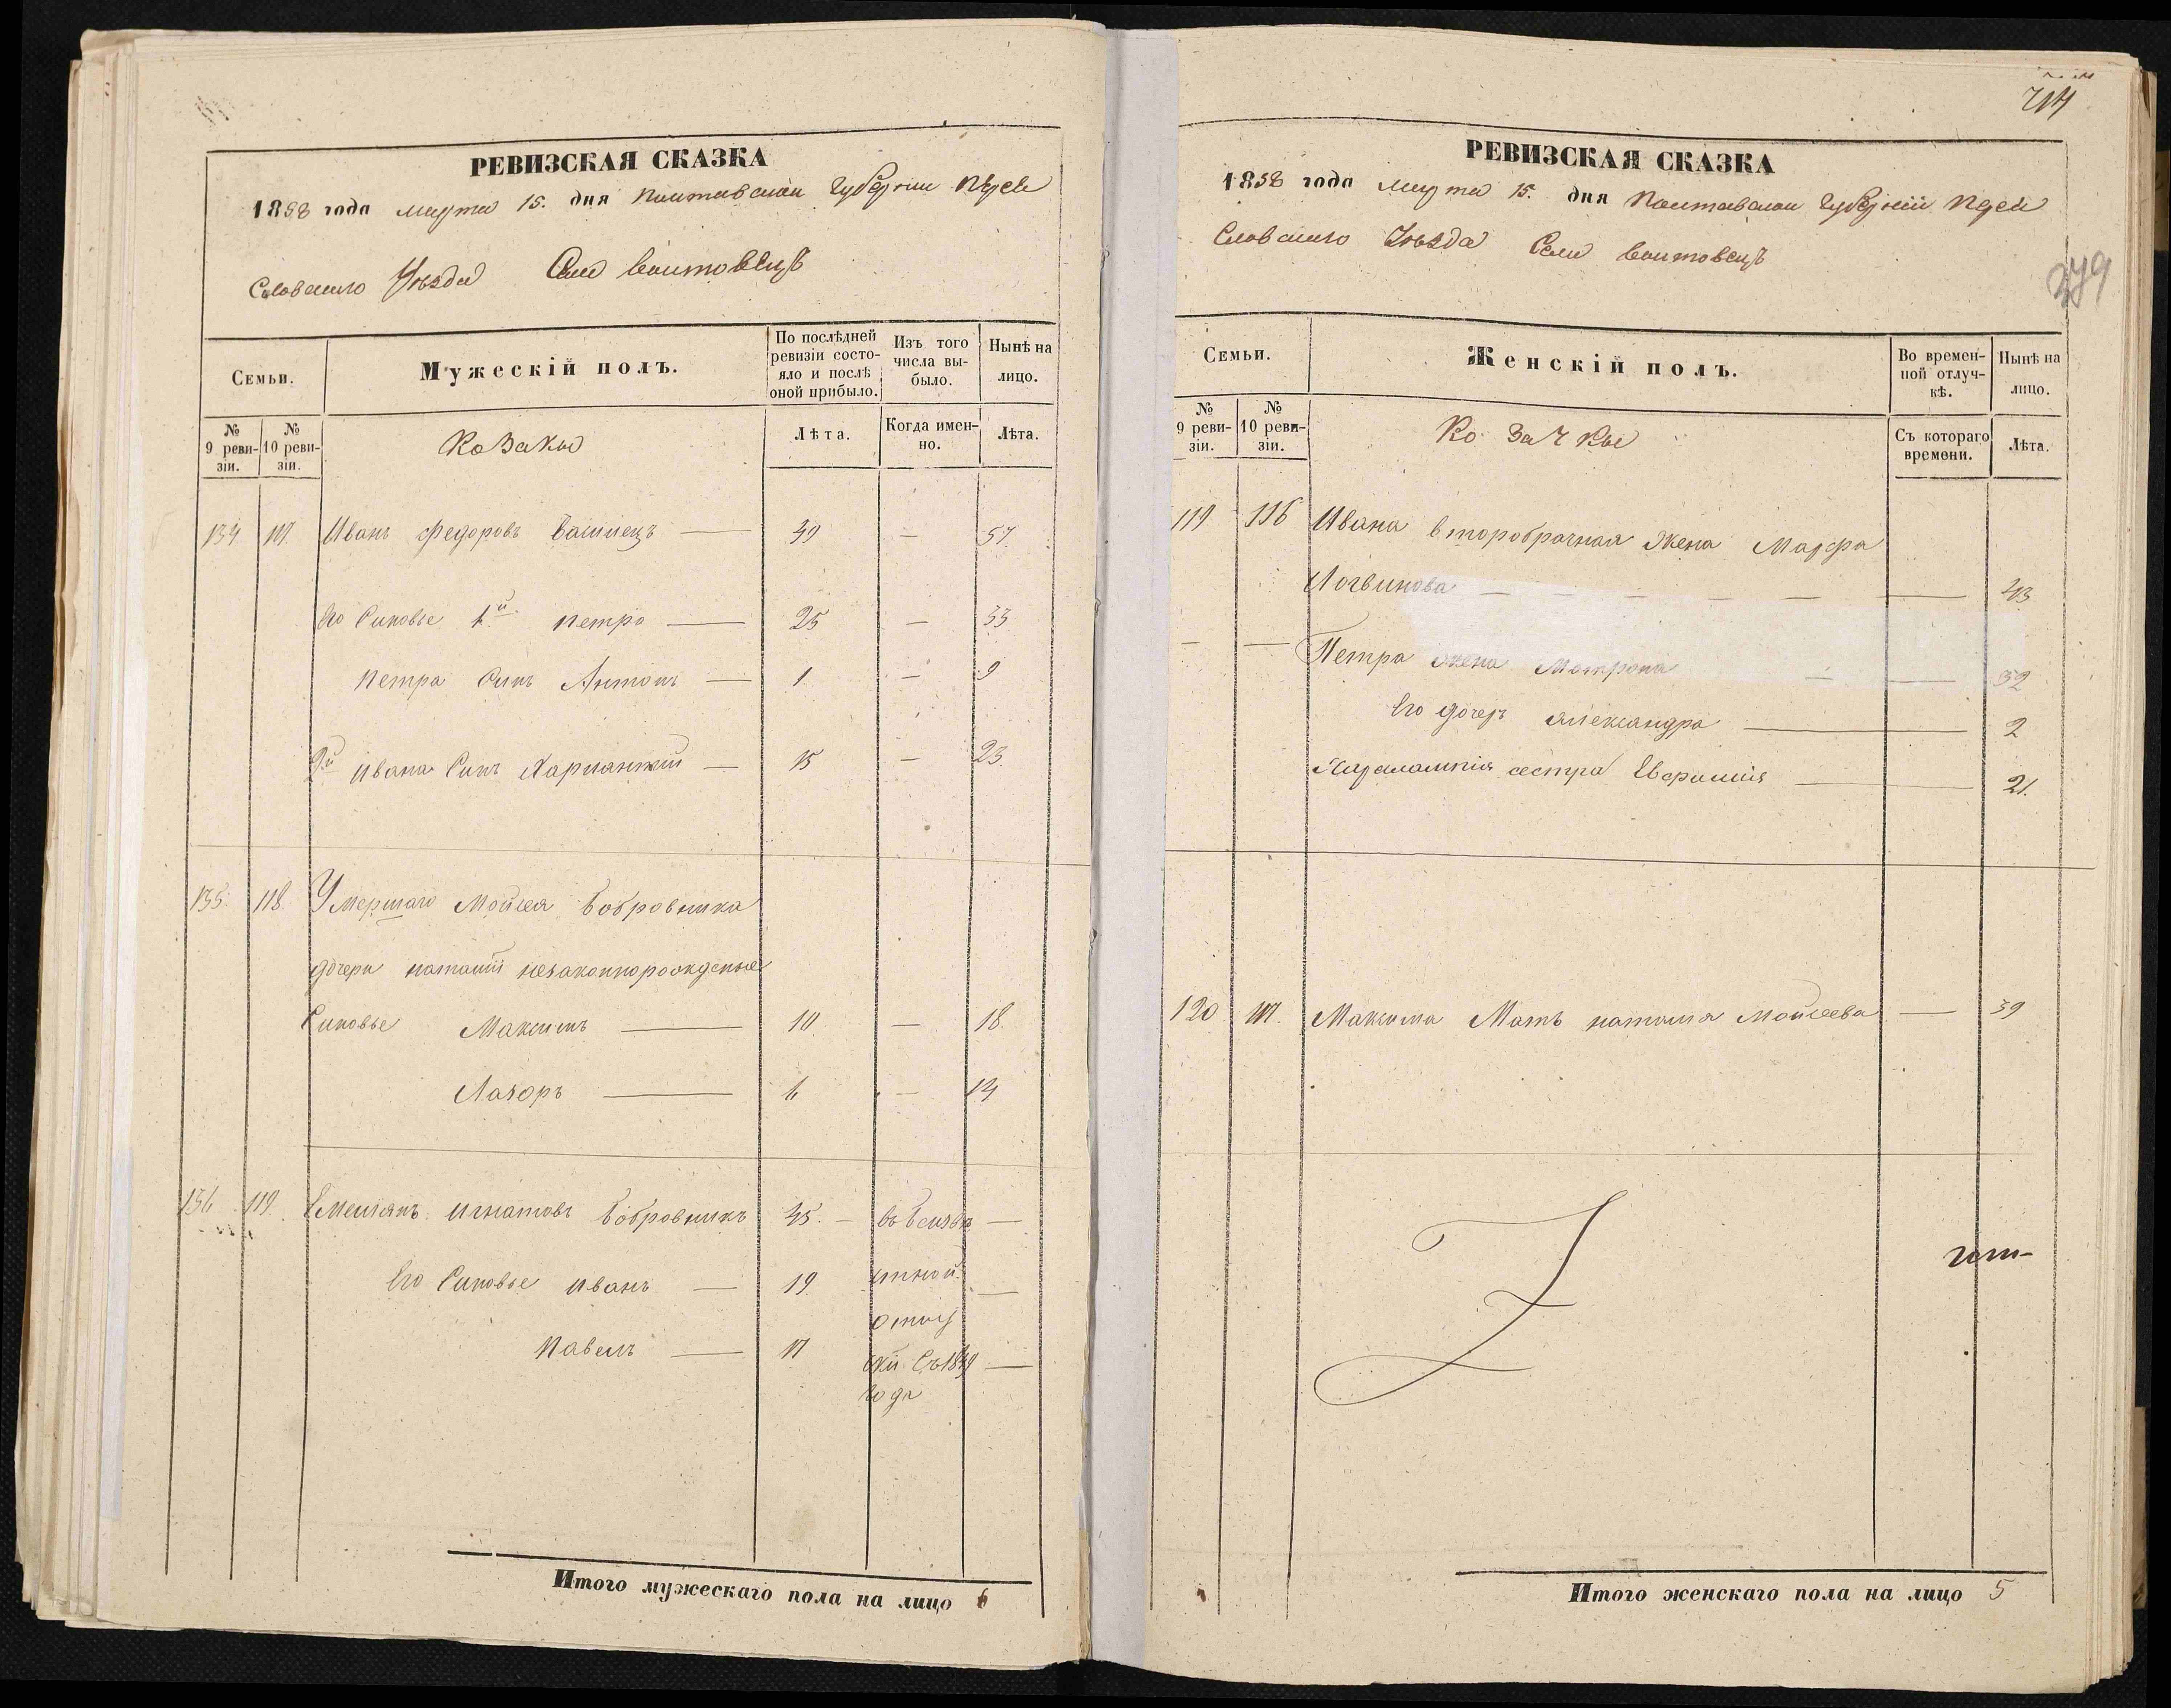 РЕВИЗСКАЯ СКАЗКА
1858 года марта 15. дня Полтавской губерніи Перея
Славского Уѣзда Села Воитовецъ
Семьи.
Мужескій полъ.
По послѣдней ревизіи состояло и послѣ оной прибыло.
Изъ того числа выбыло.
Нынѣ на лицо.
№ 9 ревизіи.
№ 10 ревизіи.
Козаки
Лѣта.
Когда именно.
Лѣта.
134 117. Иванъ Федоровъ — 49 — 57
Его Синовье 1й Петро — 25 — 33
Петра Синъ Антонъ — 1 — 9
2й Ивана Синъ — 15 — 23
135. 118. Умершаго Мойсея Бобровника
дочери Наталіи незаконнорожденые
Синовье Максимъ — 10 — 18.
Лазоръ — 6 — 14
136 119. Емелянъ Игнатовъ Бобровникъ 45. — въ безвѣ —
Его Синовье Иванъ — 19 стной —
отлу
Павелъ — 11 чки Съ 1849 —
года
Итого мужескаго пола на лицо 6
714
РЕВИЗСКАЯ СКАЗКА
1858 года марта 15. дня Полтавской губерніи Перея
Славского Уѣзда Села Воитовецъ
279
Семьи.
Женскій полъ.
Во временной отлучкѣ.
Нынѣ на лицо.
№ 9 ревизіи.
№ 10 ревизіи.
Козачки
Съ котораго времени.
Лѣта.
119 116 Ивана второбрачная жена Марфа
Логвинова — — — — — — 43
— — Петра жена Мотрона — — 32
Его дочеръ Александра — 2
Харалампія сестра Евфимія — 21.
120 117. Максима Мать Наталія Мойсеева — 39
Итого женскаго пола на лицо 5